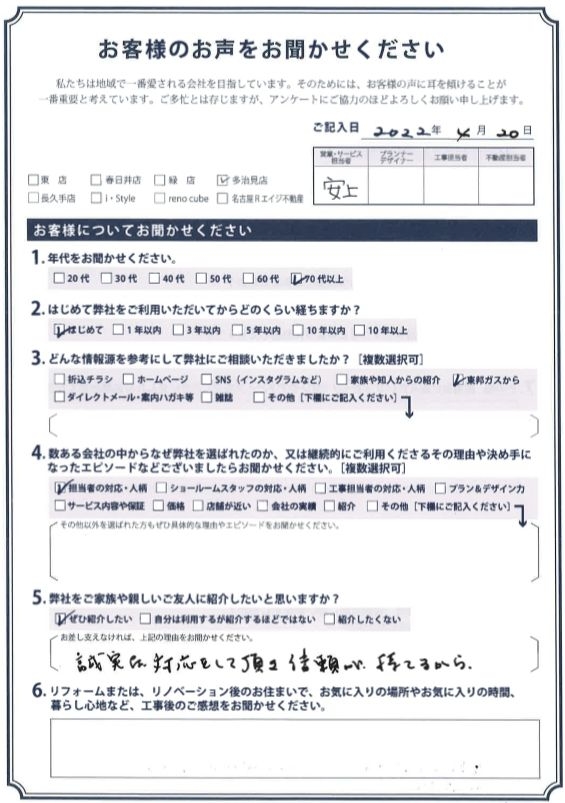 お客様のお声をお聞かせください
私たちは地域で一番愛される会社を目指しています。そのためには、お客様の声に耳を傾けることが
一番重要と考えています。ご多忙とは存じますが、アンケートにご協力のほどよろしくお願い申し上げます。
ご記入日 2022年 4月 20日
営業・サービス担当者 プランナーデザイナー 工事担当者 不動産担当者
安上
□東 店 □春日井店 □緑 店 ☑多治見店
□長久手店 □i・Style □reno cube □名古屋Rエイジ不動産
お客様についてお聞かせください
1. 年代をお聞かせください。
□20代 □30代 □40代 □50代 □60代 ☑70代以上
2. はじめて弊社をご利用いただいてからどのくらい経ちますか?
☑はじめて □1年以内 □3年以内 □5年以内 □10年以内 □10年以上
3. どんな情報源を参考にして弊社にご相談いただきましたか?[複数選択可]
□折込チラシ □ホームページ □SNS(インスタグラムなど) □家族や知人からの紹介 ☑東邦ガスから
□ダイレクトメール・案内ハガキ等 □雑誌 □その他[下欄にご記入ください]
4. 数ある会社の中からなぜ弊社を選ばれたのか、又は継続的にご利用くださるその理由や決め手に
なったエピソードなどございましたらお聞かせください。[複数選択可]
☑担当者の対応・人柄 □ショールームスタッフの対応・人柄 □工事担当者の対応・人柄 □プラン&デザイン力
□サービス内容や保証 □価格 □店舗が近い □会社の実績 □紹介 □その他[下欄にご記入ください]
その他以外を選ばれた方もぜひ具体的な理由やエピソードをお聞かせください。
5. 弊社をご家族や親しいご友人に紹介したいと思いますか?
☑ぜひ紹介したい □自分は利用するが紹介するほどではない □紹介したくない
お差し支えなければ、上記の理由をお聞かせください。
誠実な対応をして頂き信頼が持てるから.
6. リフォームまたは、リノベーション後のお住まいで、お気に入りの場所やお気に入りの時間、
暮らし心地など、工事後のご感想をお聞かせください。